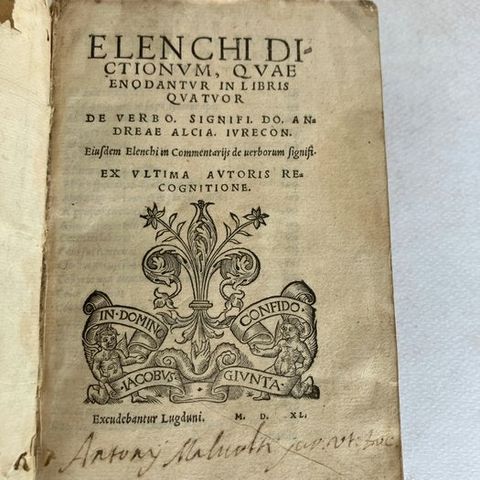 ELENCHI DI-
CTIONVM, QVAE
ENODANTVR IN LIBRIS
QVATVOR
DE VERBO. SIGNIFI. DO. AN-
DREAE ALCIA. IVRECON.
Eiusdem Elenchi in Commentarijs de uerborum signifi.
EX VLTIMA AVTORIS RE-
COGNITIONE.
IN·DOMINO CONFIDO
IACOBVS GIVNTA
Excudebantur Lugduni. M. D. XL.
Antonij